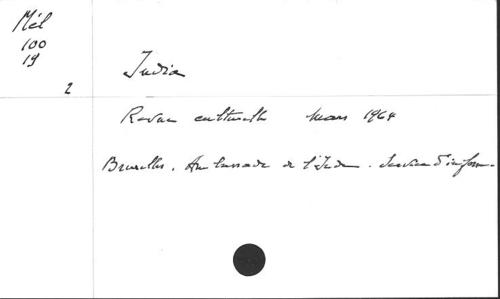 Mél
100
19
2
India
Revue culturelle Mars 1964
Bruxelles. Ambassade de l'Inde. Service d'inform.